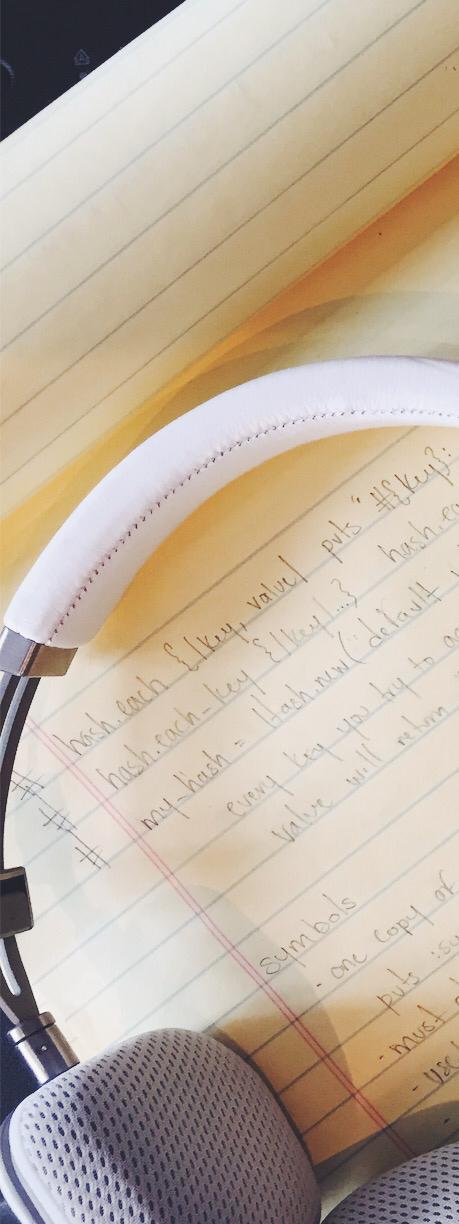 hash.each {|key, value| puts "#{key}:
# hash.each_key {|key| ...} hash.ea
# my_hash = Hash.new(:default
# every key you try to a
value will return
symbols
- one copy of
puts :sy
- must
- use